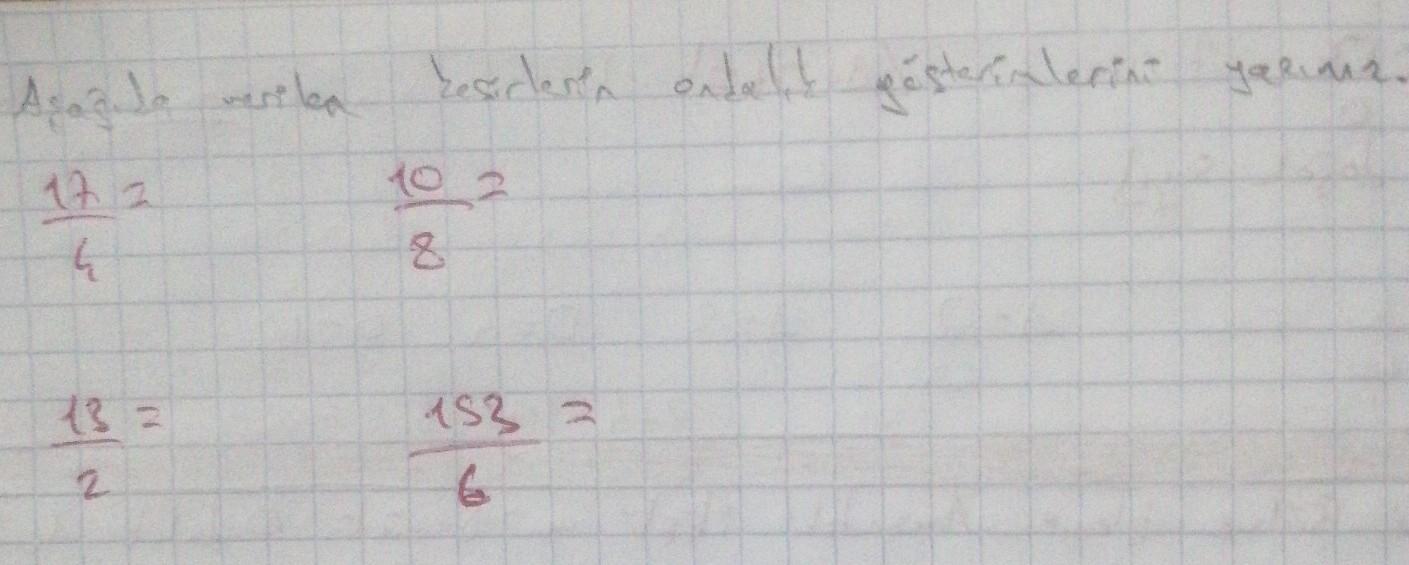 Aşağıda verilen kesirlerin ondalık gösterimlerini yazınız.
17/4 = 10/8 =
13/2 = 153/6 =